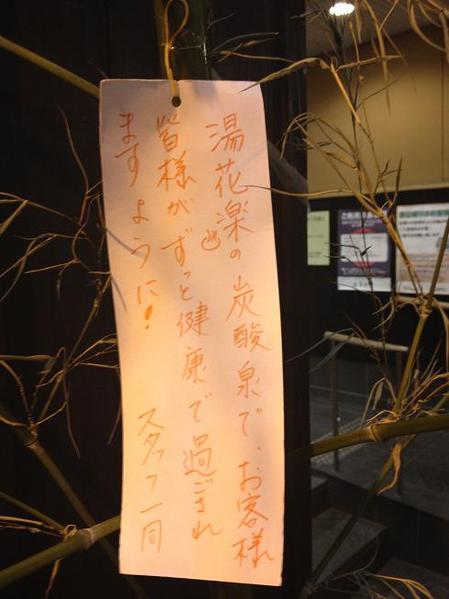 湯花楽の炭酸泉で、お客様
皆様がずっと健康で過ごされ
ますように!
スタッフ一同